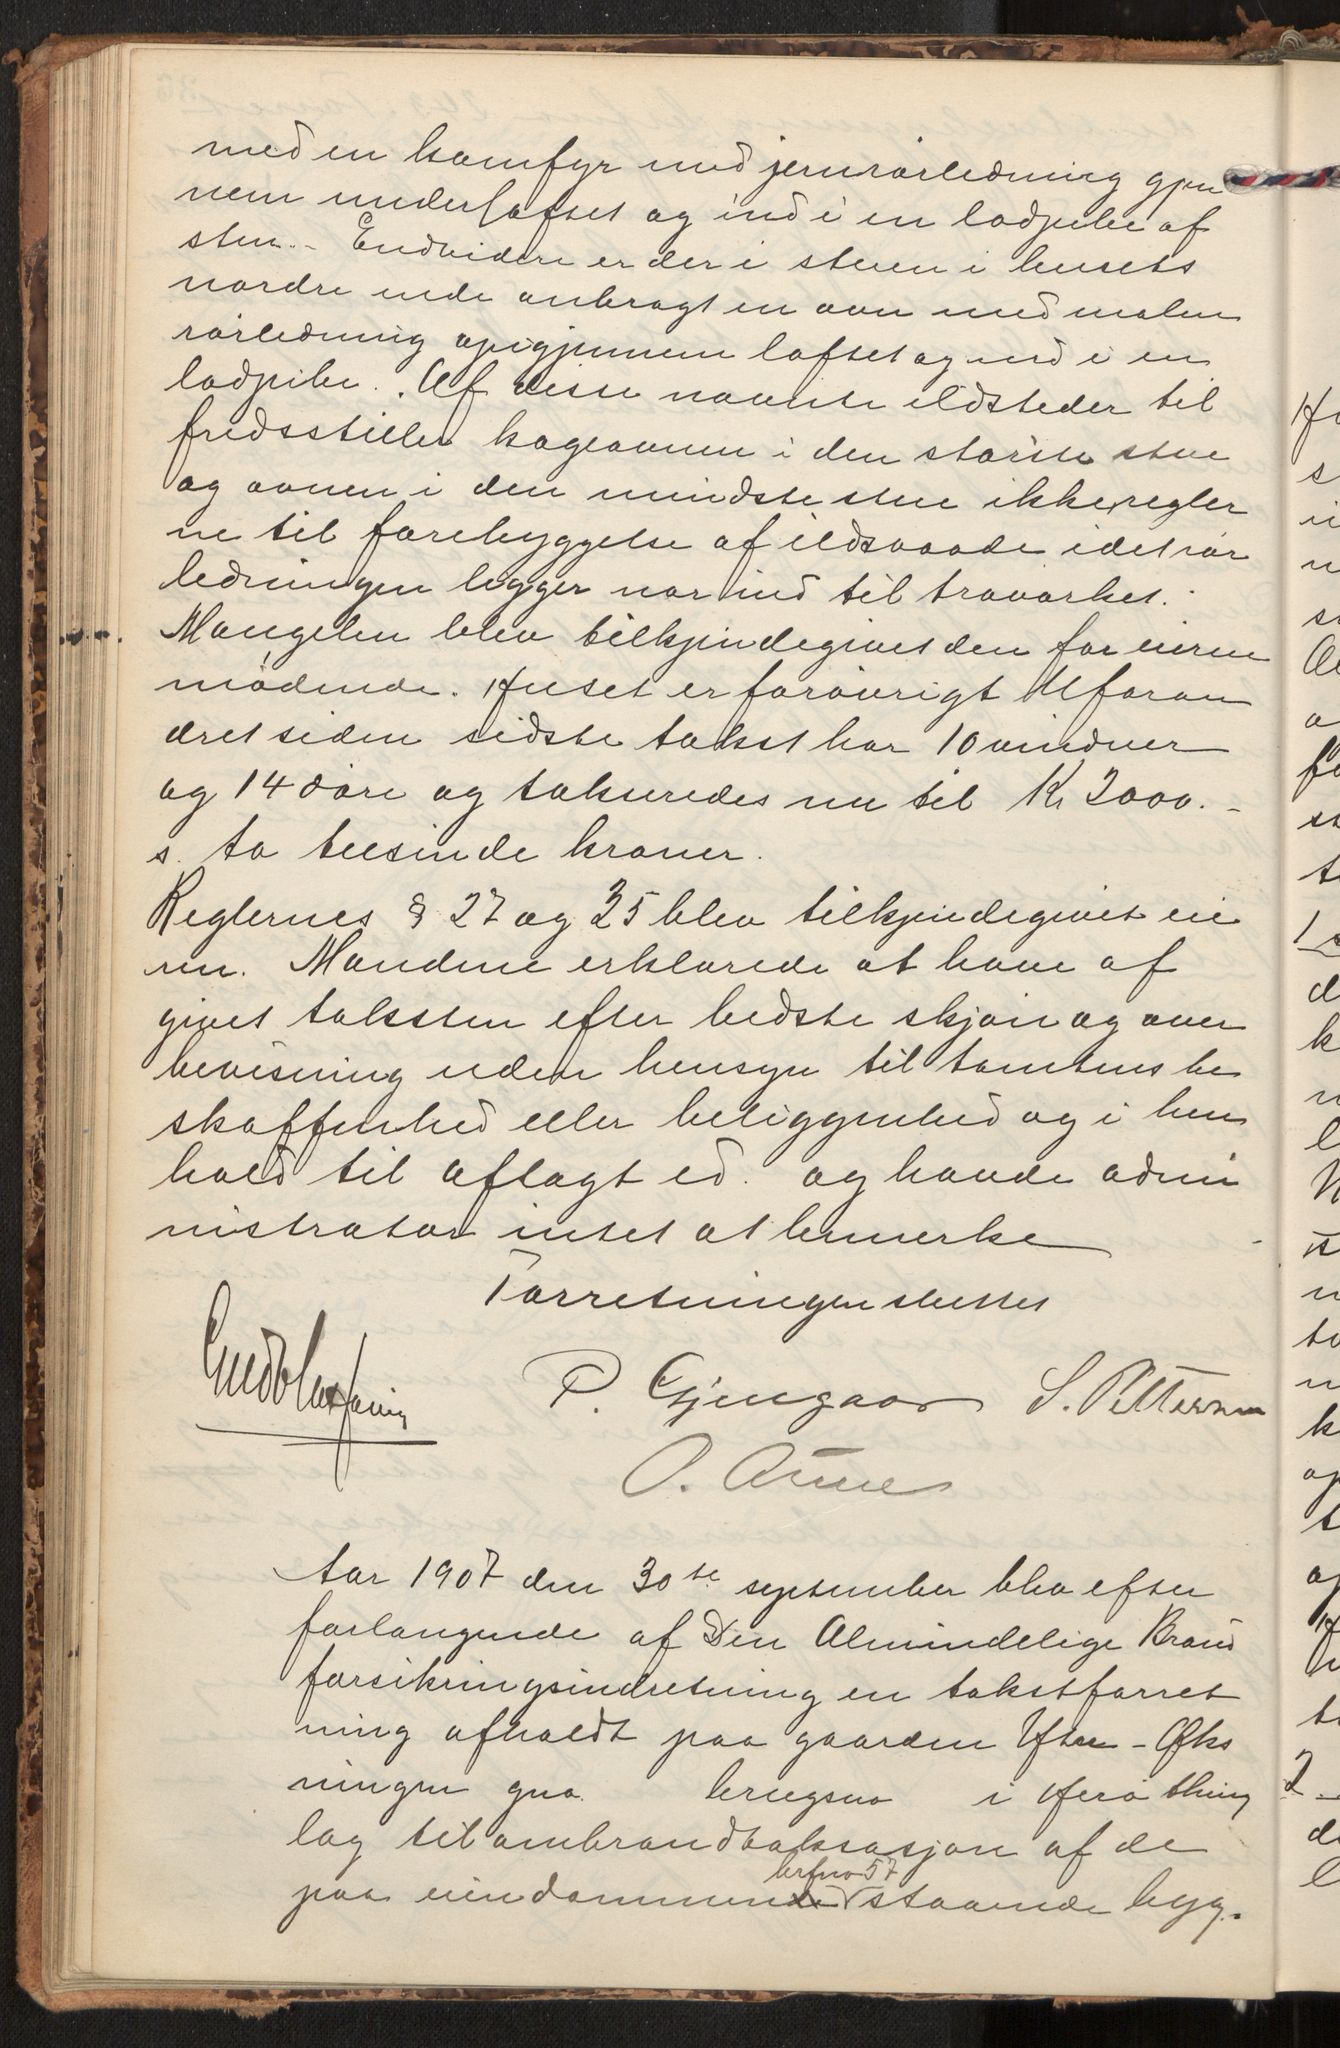 med en komfyr med jernrørledning gjen
nem underloftet og ind i en lodpibe af
sten.- Endvidere er der i stuen i husets
nordre ende anbragt en ovn med
rørledning op igjennem loftet og ind i en
lodpibe. Af disse nævnte ildsteder til
fredsstiller kogeovnen i den største stue
og ovnen i den mindste stue ikke regler
ne til forebyggelse af ildsvaade idet rør
ledningen ligger nær ind til træværket.
Mangelen blev tilkjendegivet den for eieren
mødende. Huset er forøvrigt uforan
dret siden sidste takst har 10 vinduer
og 14 døre og takseredes nu til Kr 2000.-
s. to tusinde kroner.
Reglernes § 27 og 35 blev tilkjendegivet eie
ren. Mændene erklærede at have af
givet taksten efter bedste skjøn og over
bevisning uden hensyn til tomtens be
skaffenhed eller beliggenhed og i hen
hold til aflagt ed. og havde admi
nistrator intet at bemerke
Forretningen sluttet
P. Gjengaar S. Pettersen
O. Aune
Aar 1907 den 30te september blev efter
forlangende af Den Almindelige Brand
forsikringsindretning en takstforret
ning afholdt paa gaarden Yttre-Øks
ningen gno. brugsno i Herø thing
lag til ombrandtaksasjon af de
paa eiendommen brfno 57 staaende byg.